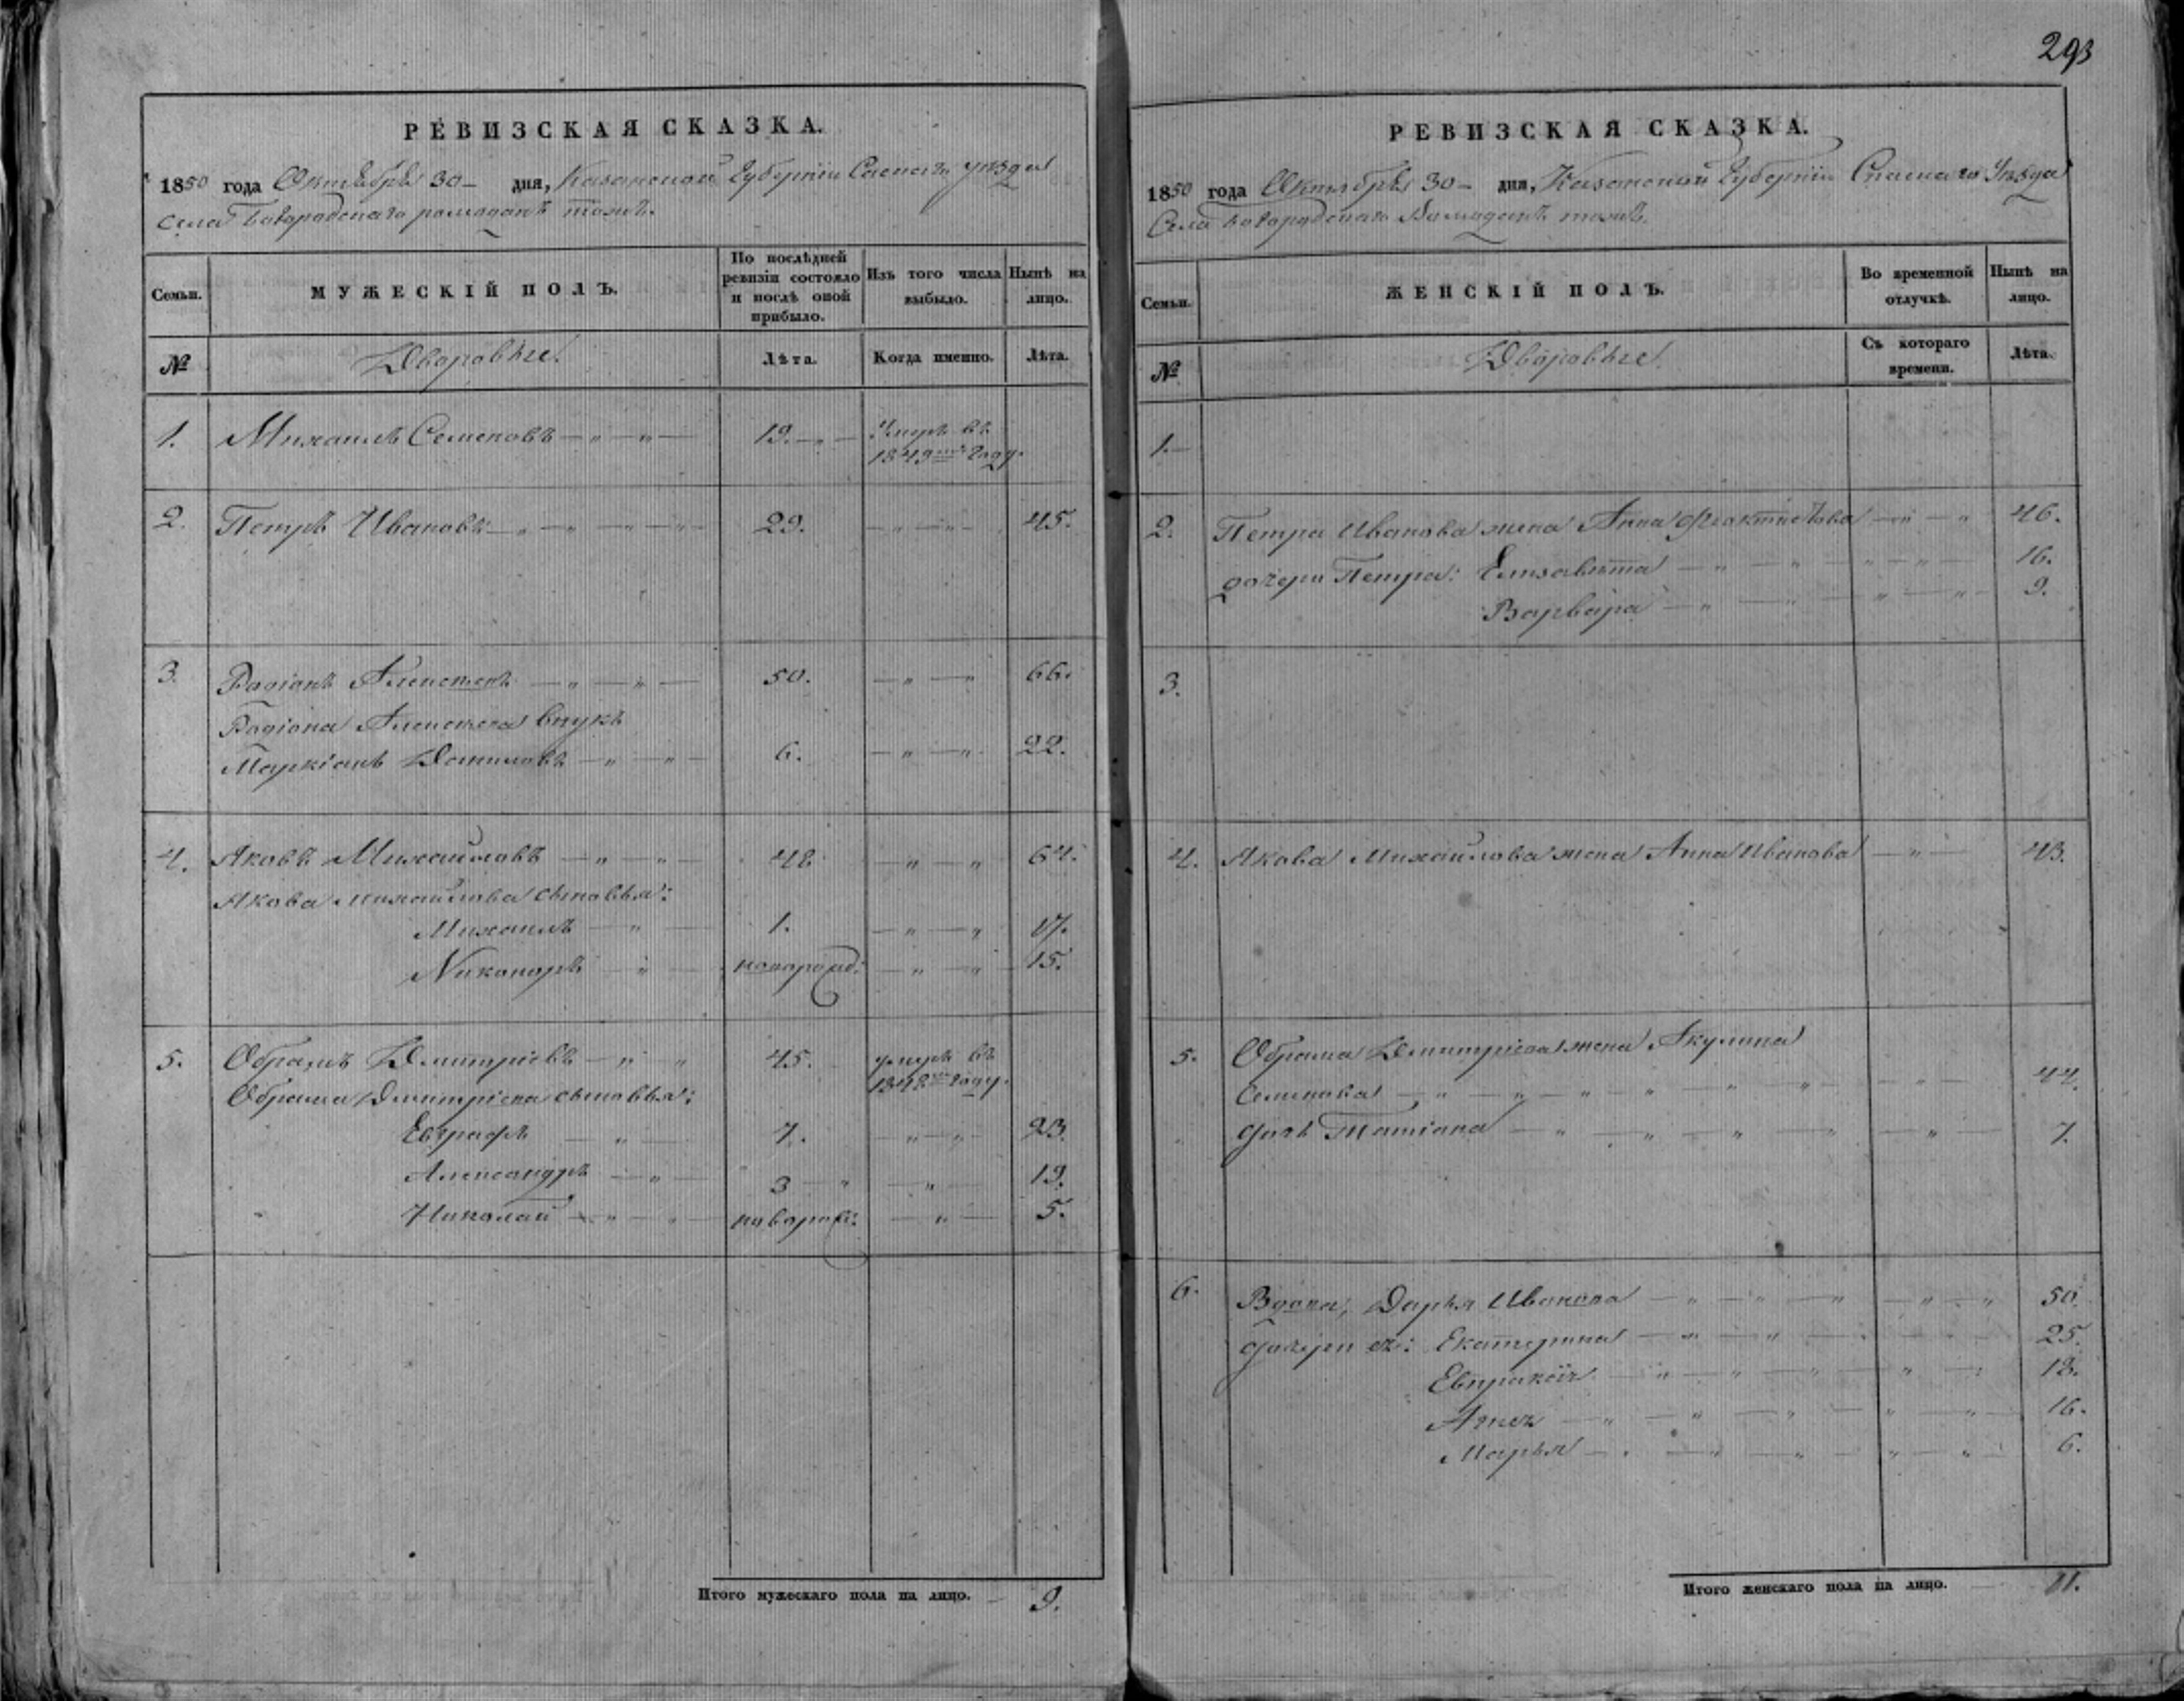 293
РЕВИЗСКАЯ СКАЗКА.
1850 года Октября 30 дня, Казанской Губернии Спаскаго уезда
села Богородскаго ромодань тожъ.
Семьи. МУЖЕСКІЙ ПОЛЪ. По послѣдней ревизіи состояло и послѣ оной прибыло. Изъ того числа выбыло. Нынѣ на лицо.
№ Дворовые. Лѣта. Когда именно. Лѣта.
1. Михаилъ Семеновъ 19. Умеръ въ
1849 году.
2. Петръ Ивановъ 29. 45.
3. Радіонъ Алексеевъ 50. 66.
Радіона Алексеева внукъ
Маркіанъ Даниловъ 6. 22.
4. Яковъ Михайловъ 48 64.
Якова Михайлова сыновья:
Михаилъ 1. 17.
Никаноръ новорожд: 15.
5. Обрамъ Дмитріевъ 45. умеръ въ
1848 году.
Обрама Дмитріева сыновья:
Евграфъ 7. 23.
Александръ 3 19.
Николай новорож: 5.
Итого мужескаго пола на лицо. 9.
РЕВИЗСКАЯ СКАЗКА.
1850 года Октября 30 дня, Казанской Губерніи Спаскаго Уезда
Села Богородскаго Ромодань тожъ.
Семьи. ЖЕНСКІЙ ПОЛЪ. Во временной отлучкѣ. Нынѣ на лицо.
№ Дворовые Съ котораго времени. Лѣта.
1.
2. Петра Иванова жена Анна Феоктистова 46.
дочери Петра: Елизавета 16.
Варвара 9.
3.
4. Якова Михайлова жена Анна Иванова 43.
5. Обрама Дмитріева жена Акулина
Семенова 44.
дочь Татіана 7.
6. Вдова, Дарья Иванова 50.
дочери ее: Екатерина 25.
18.
16.
Марья 6.
Итого женскаго пола на лицо. 11.